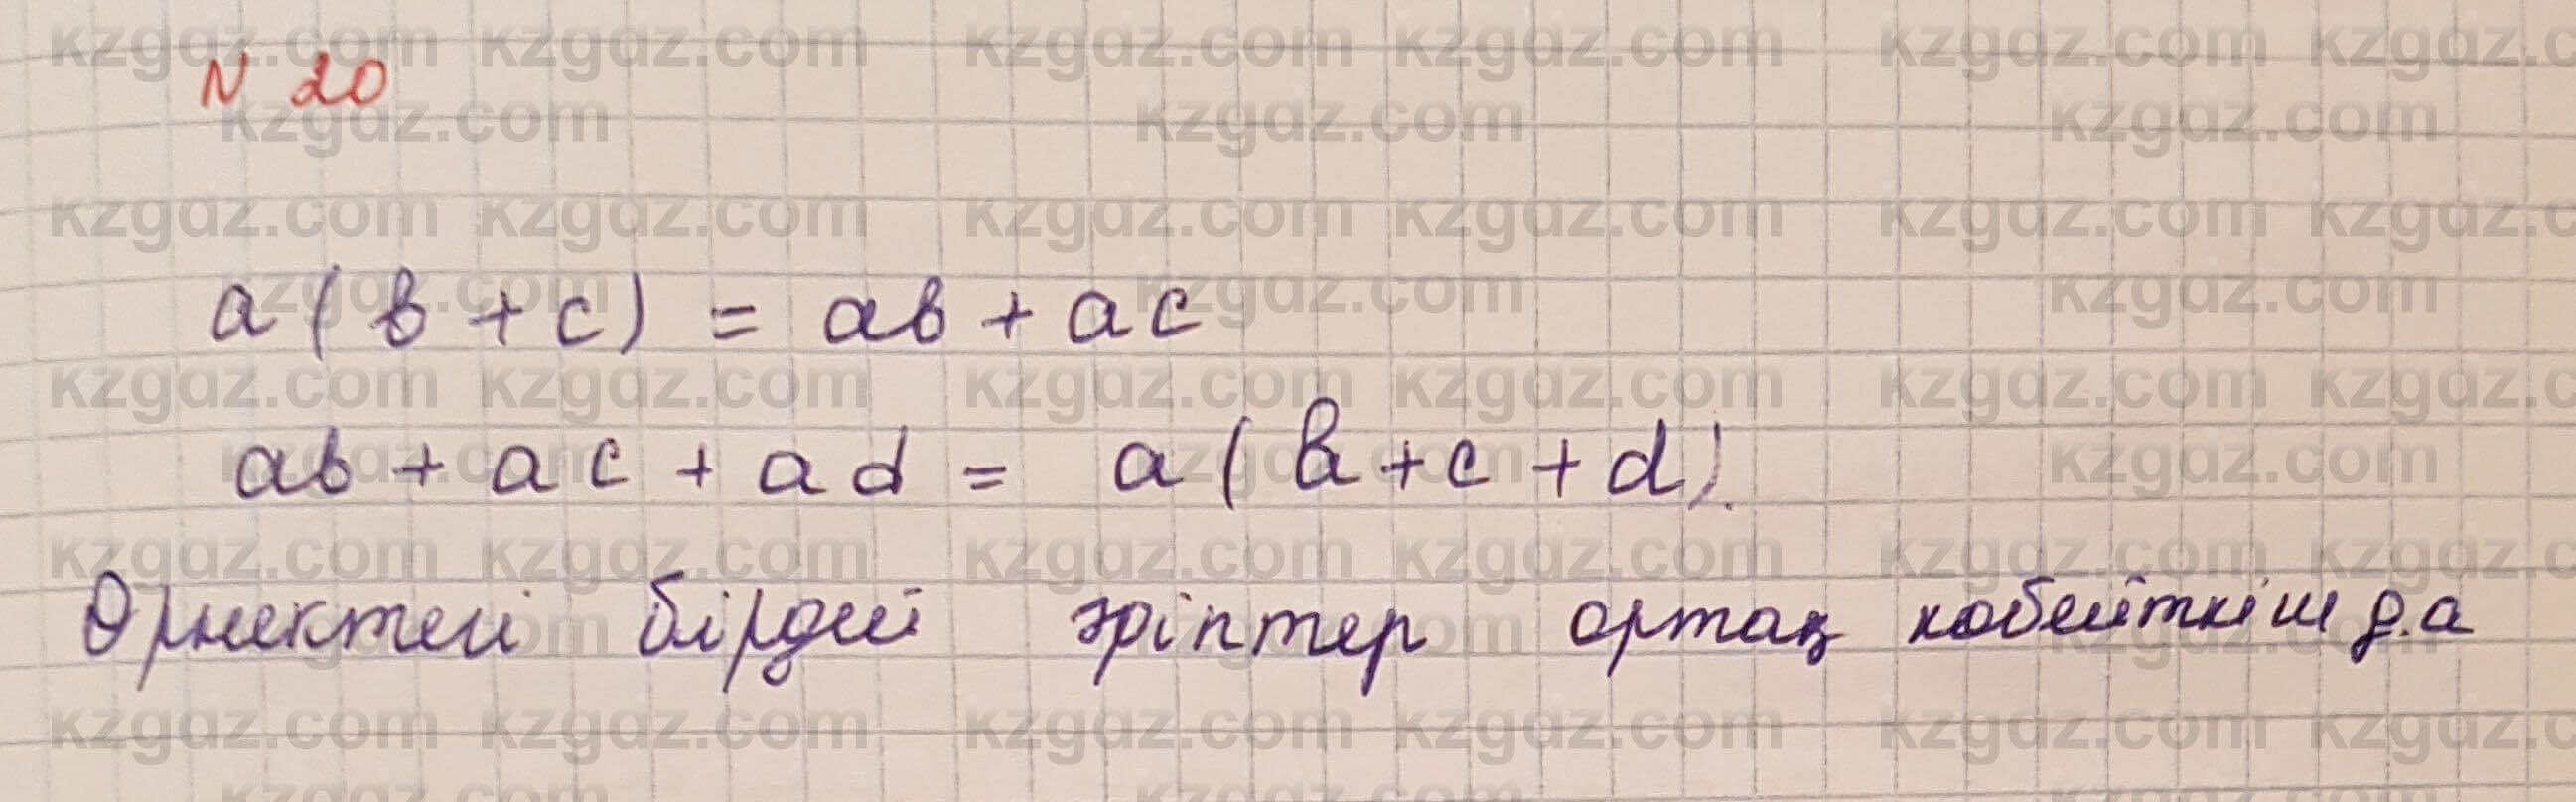 N 20
a(b+c) = ab + ac
ab + ac + ad = a(b+c+d).
Өрнектегі бірдей әріптер ортақ көбейткіш д.а
kzgdz.com